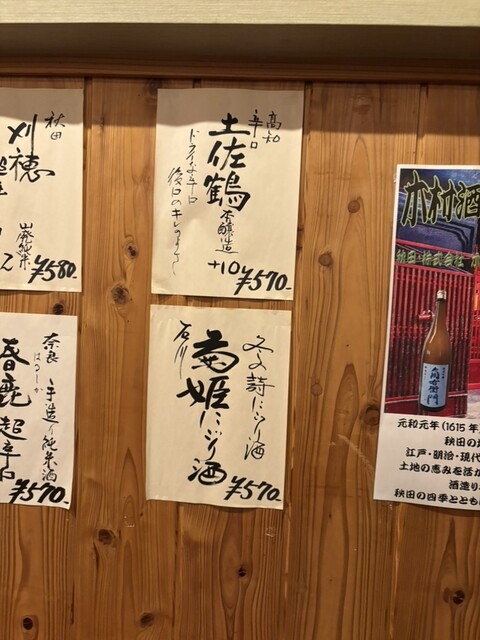 秋田
刈穂
山廃純米
¥580
高知
辛口
土佐鶴
本醸造
+10
¥570-
ドライな辛口
後口のキレのよさ
奈良
はるしか
手造り純米酒
春鹿超辛口
¥570-
冬の詩にごり酒
石川
菊姫にごり酒
¥570-
木村酒
秋田・株式会社 木
角右衛門
元和元年(1615年
秋田の
江戸・明治・現代
土地の恵みを活か
酒造り
秋田の四季ととも